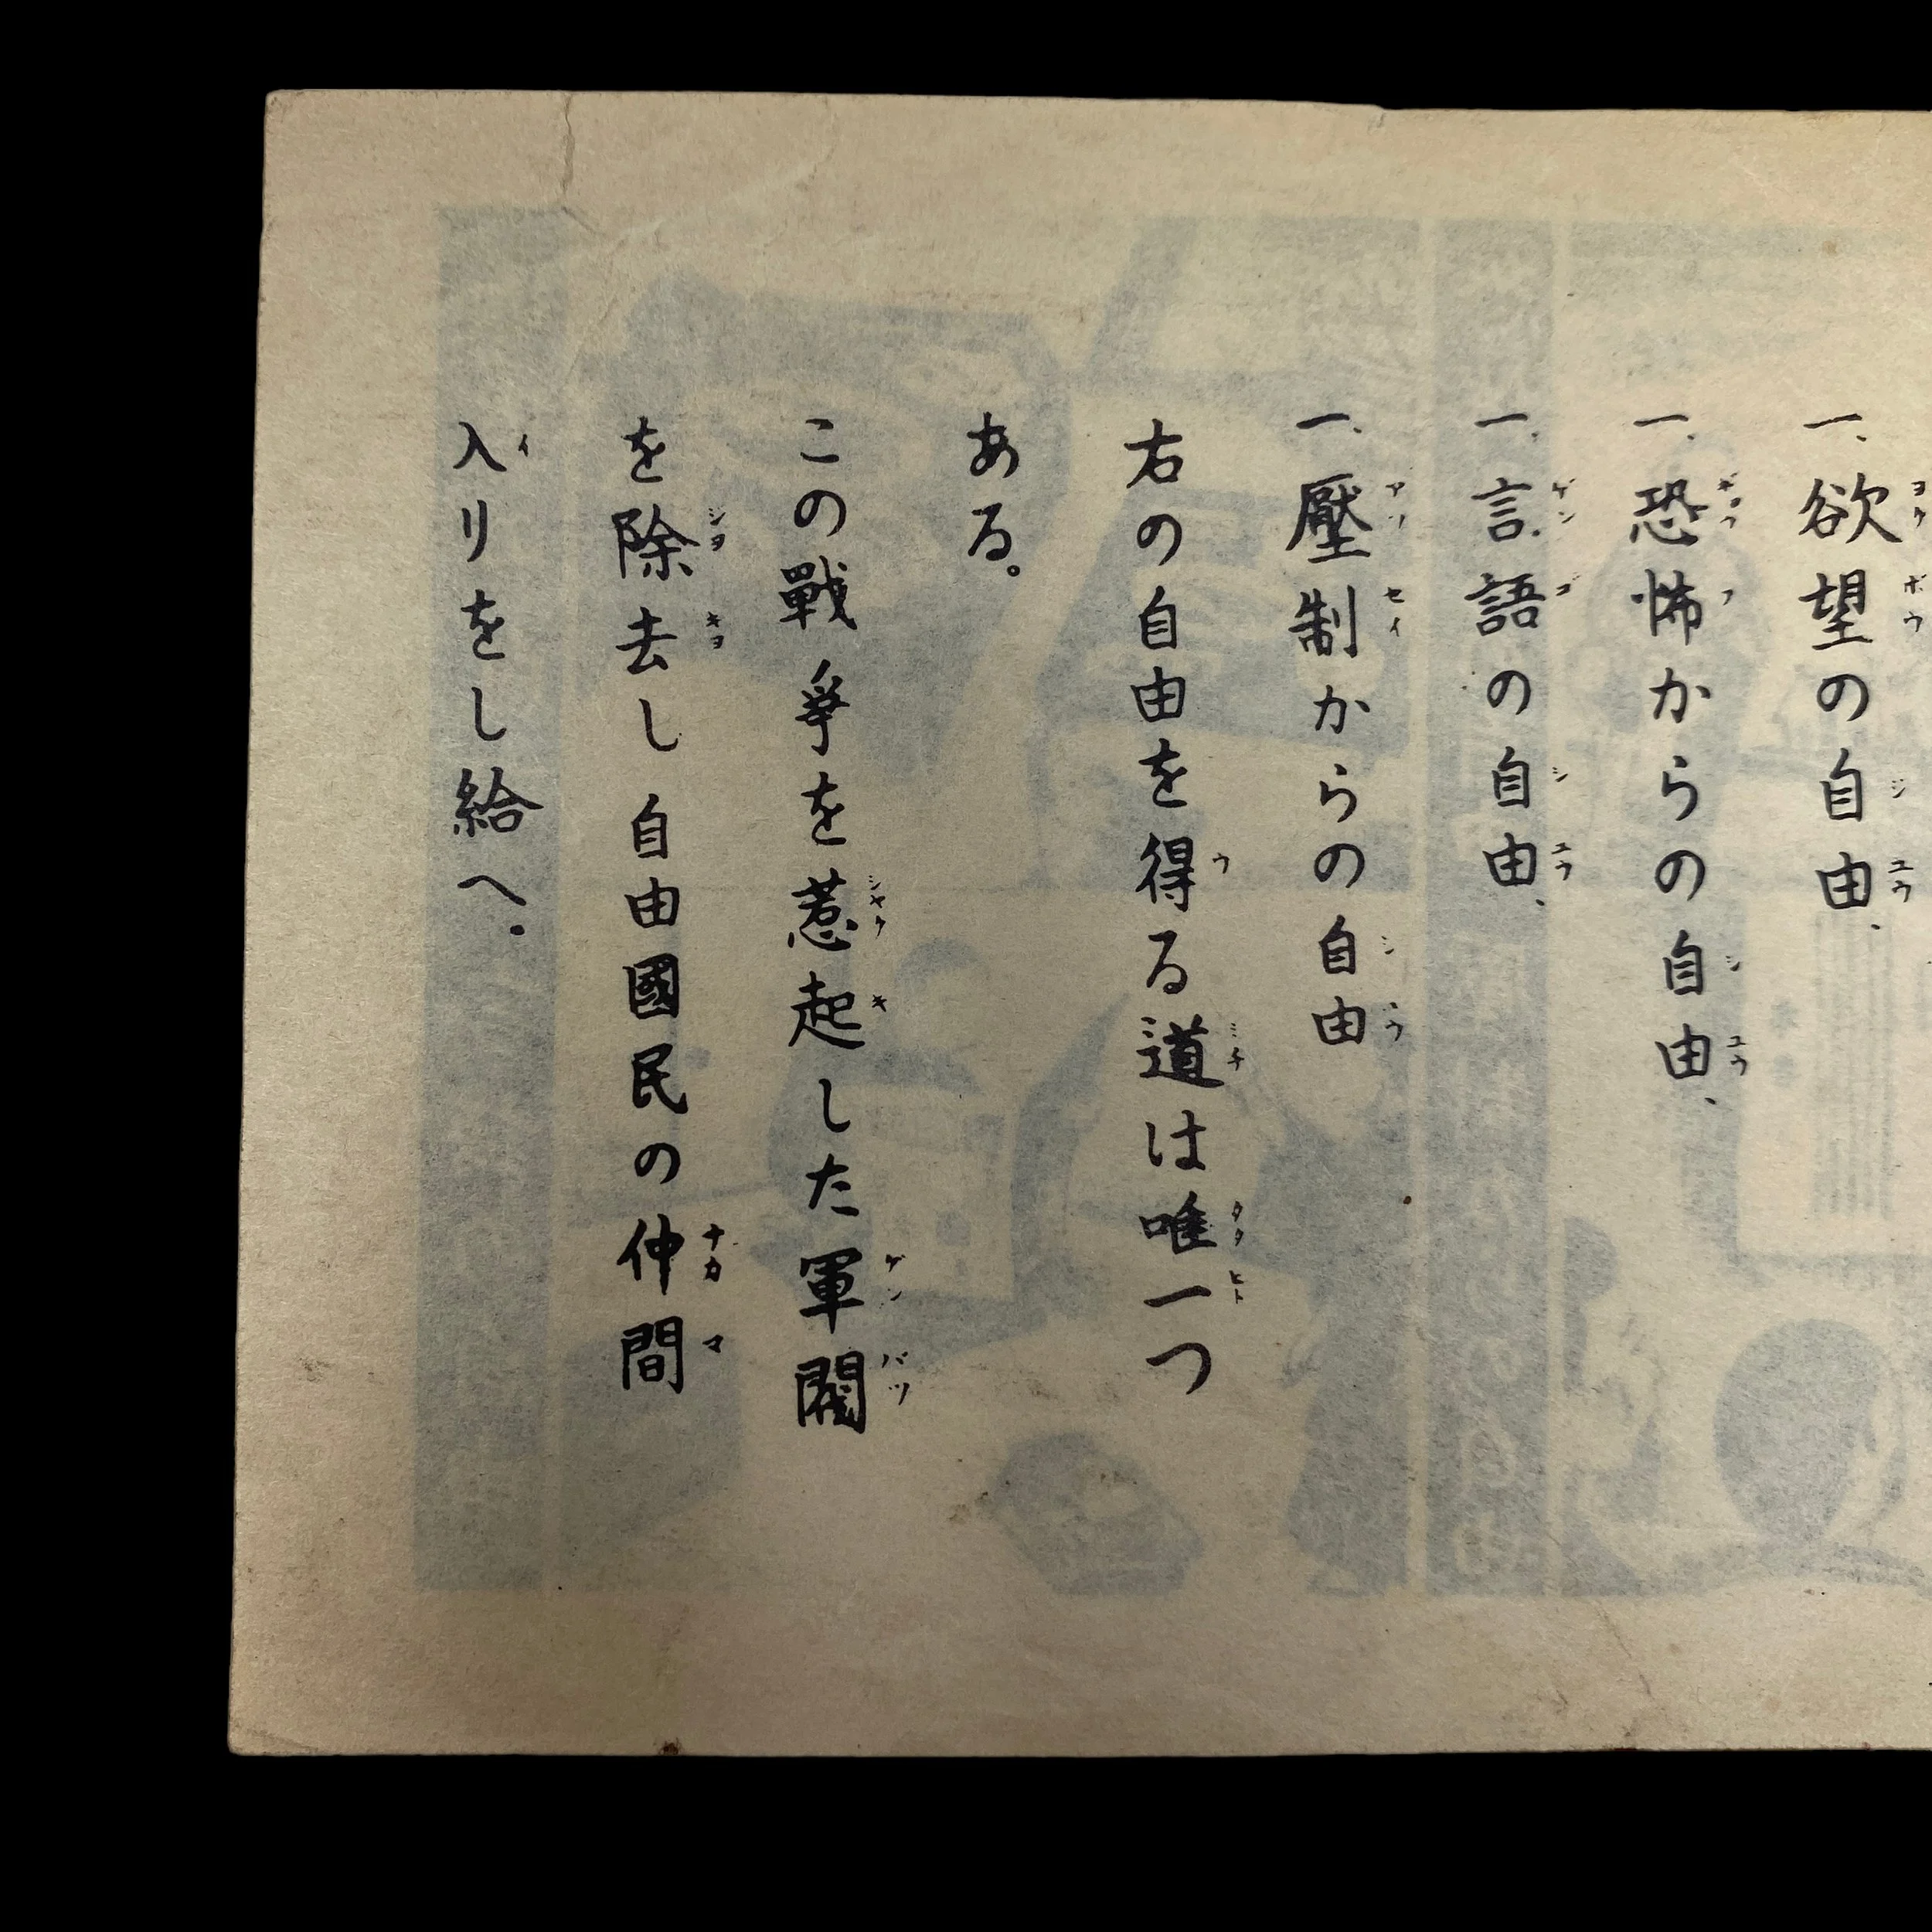 一、欲望の自由、
一、恐怖からの自由、
一、言語の自由、
一、壓制からの自由
右の自由を得る道は唯一つ
ある。
この戰爭を惹起した軍閥
を除去し自由國民の仲間
入リをし給へ.